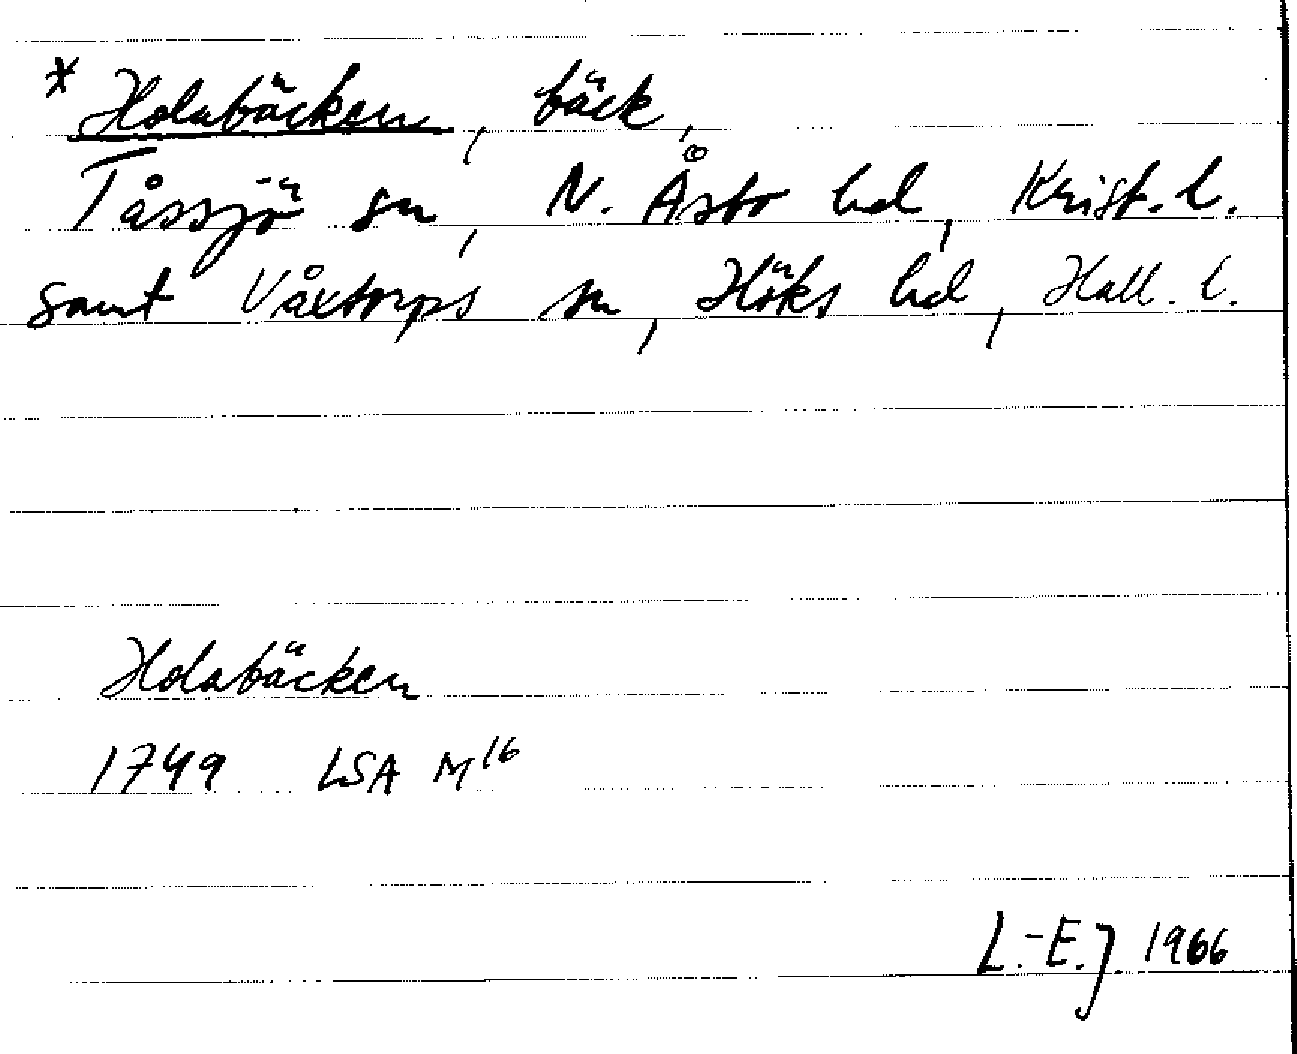 * Holabäcken, bäck,
Tåssjö sn, N. Åsbo hd, Krist. l.
samt Våxtorps sn, Höks hd, Hall. l.
Holabäcken
1749 LSA M16
L.-E.J. 1966